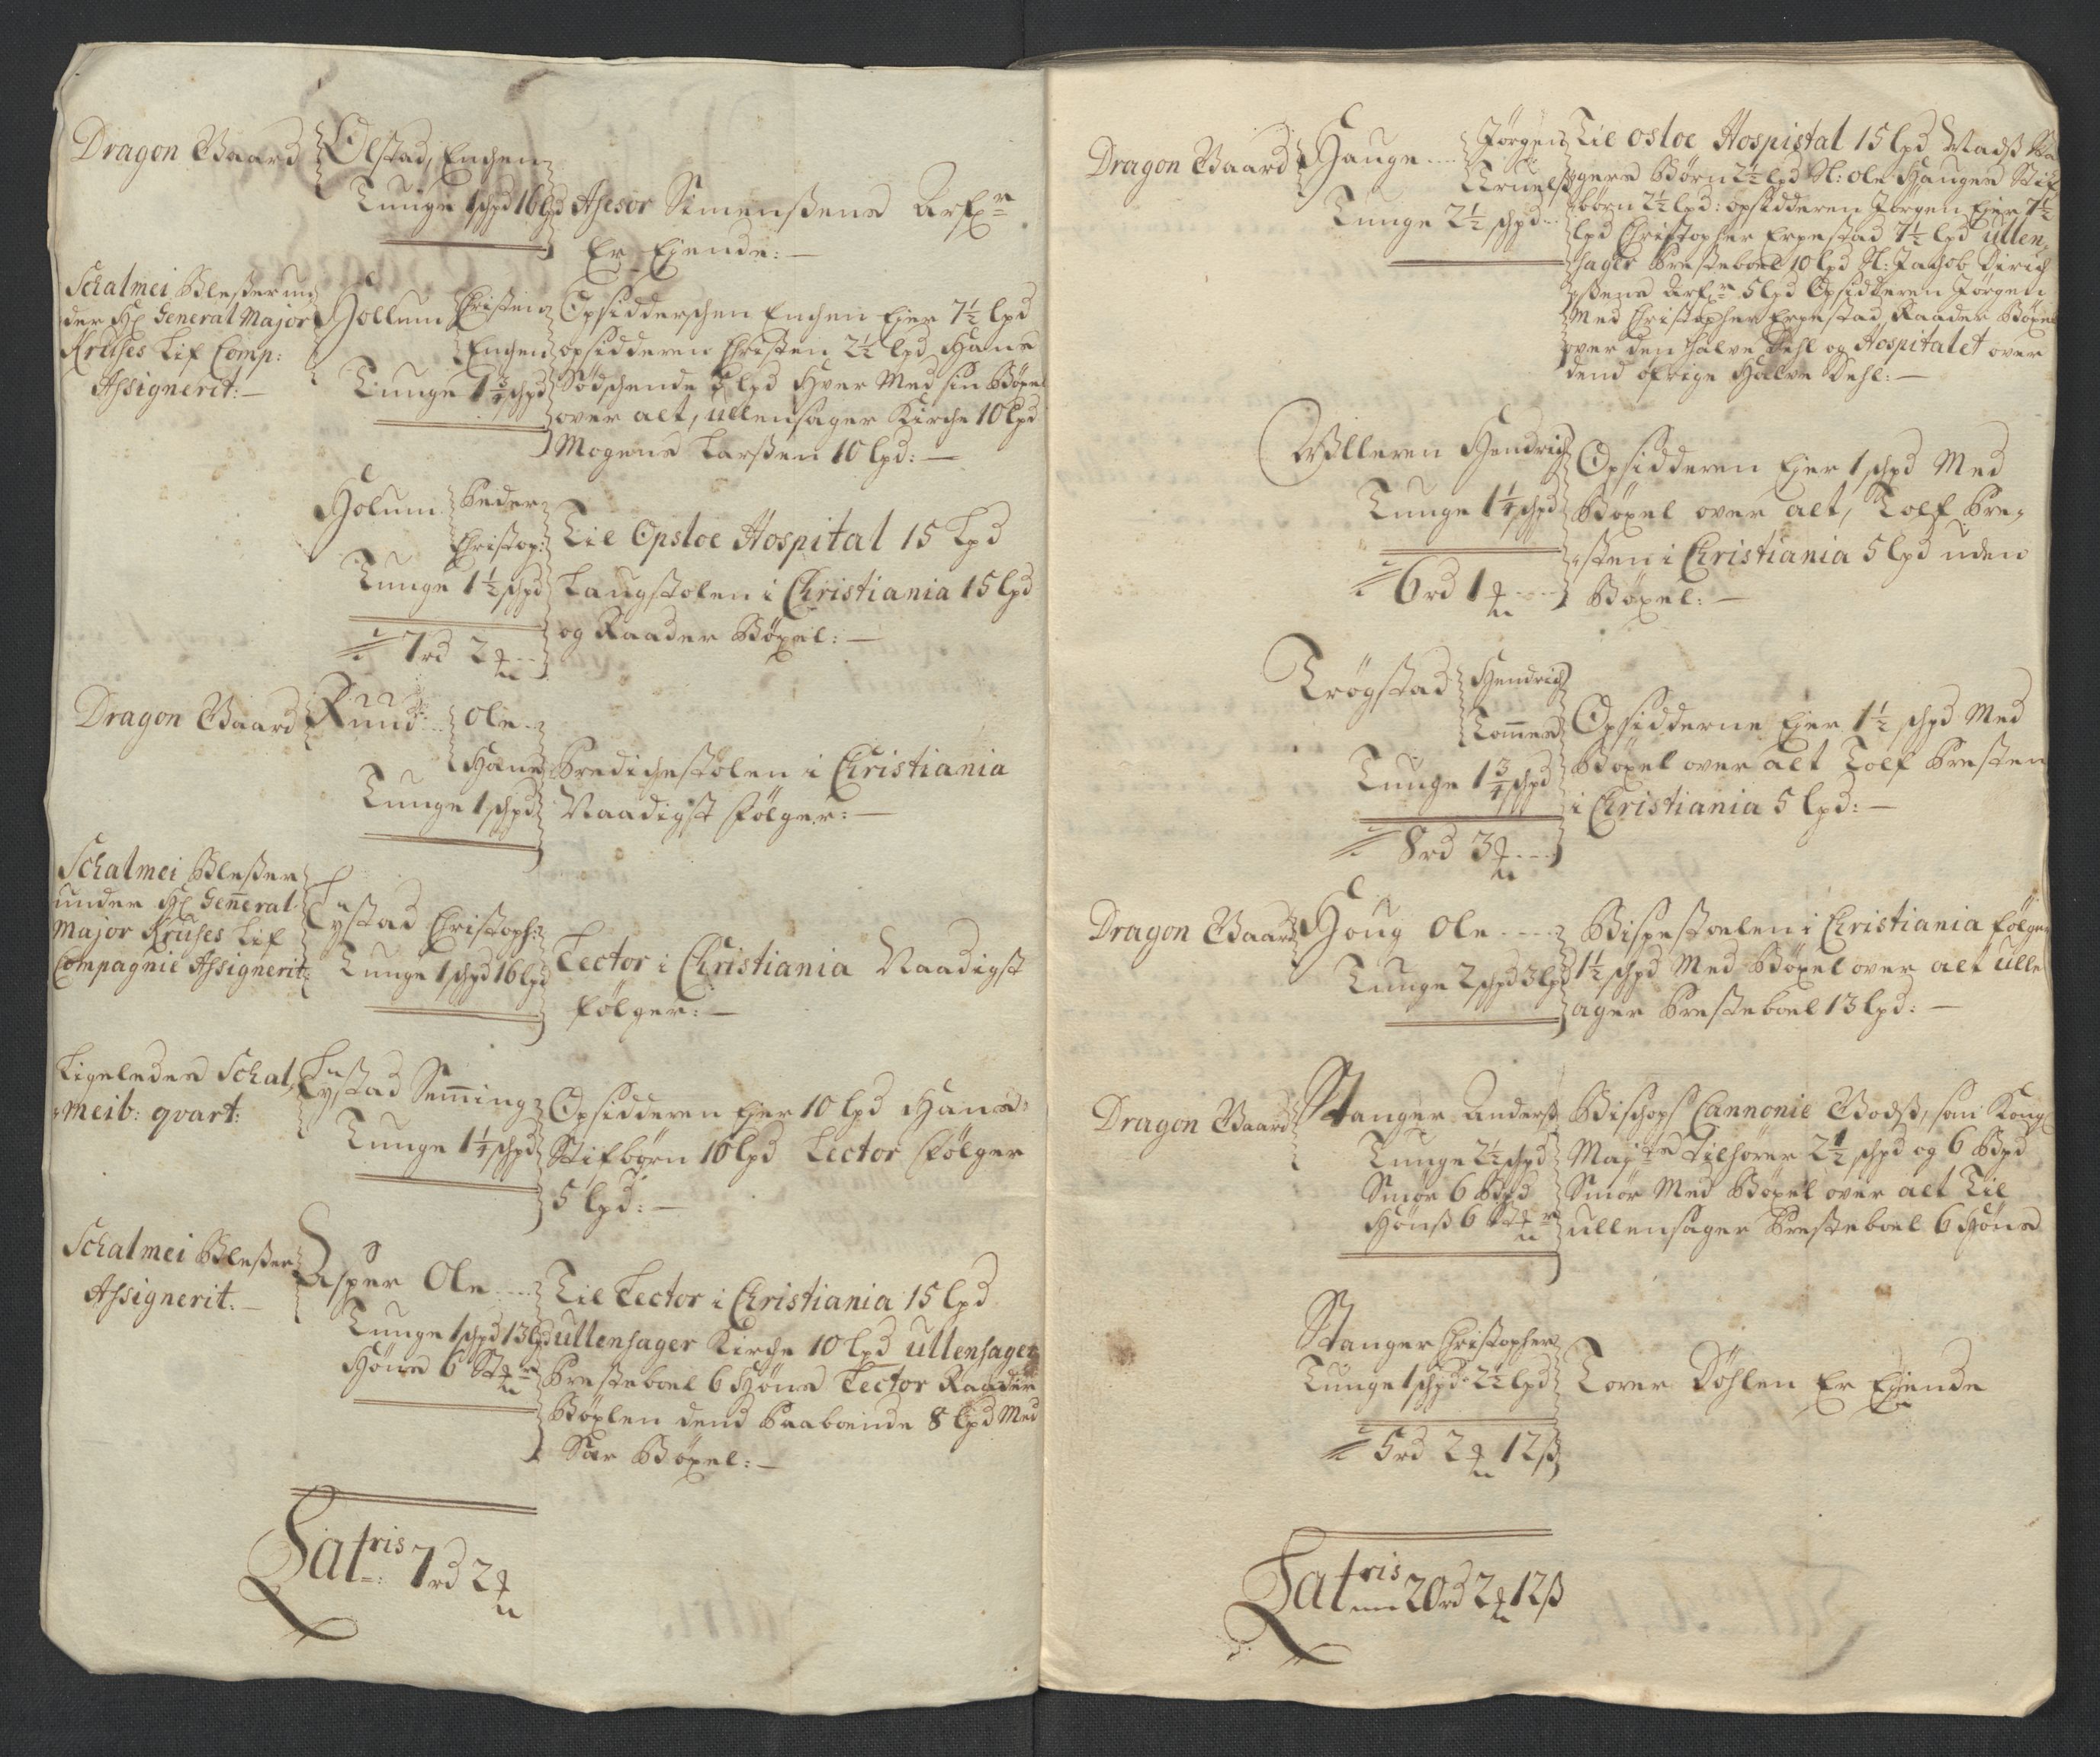 Dragon Gaard
Olstad, Enchen
Tunge 1 schpd 16 lpd
Assesor Simenßens Arfr
Er Ejende: —
Schalmei Bleßer un
der Hl General Major
Kruses Lif Comp:
Assignerit: —
Hollum
Christen
Enchen
Tunge 1¾ schpd
Opsidderschen Enchen Ejer 7½ lpd
opsidderen Christen 2½ lpd Hans
Sødschende 5 lpd Hver Med sin Bøxel
over alt, ullensager Kirche 10 lpd
Mogens Larßen 10 lpd: —
Holum
Peder
Christop:
Tunge 1½ schpd
7 rd 2
Til Opsloe Hospital 15 Lpd
Laugstolen i Christiania 15 lpd
og Raader Bøxel: —
Dragon Gaard
Rund
Ole
Hans
Tunge 1 schpd
Predichestolen i Christiania
Naadigst følger: —
Schalmei Bleßer
under Hl General
Major Kruses Lif
Compagnie Assignerit:
Lystad Christoph:
Tunge 1 schpd 16 lpd
Lector i Christiania Naadigst
følger: —
Ligeledes Schal,
meib: qvart:
Lystad Semming
Tunge 1¼ schpd
Opsidderen Ejer 10 lpd Hans
Stifbørn 10 lpd Lector følger
5 lpd: —
Schalmei Bleßer
Assignerit. —
Asper Ole
Tunge 1 schpd 13 lpd
Høns 6 St
Til Lector i Christiania 15 lpd
ullensager Kirche 10 lpd ullensager
Presteboel 6 Høns Lector Raader
Bøxlen dend Paaboende 8 lpd Med
Sær Bøxel: —
Latris 7 rd 2
Dragon Gaard
Hauge
Jørgen
Truels
Tunge 2½ schpd
Til osloe Hospistal 15 lpd Madß
gers Børn 2½ lpd Sl: Ole Hauges Stif
børn 2½ lpd: opsidderen Jørgen Ejer 7½
lpd Christopher Erpestad 7½ lpd ullen,
sager Presteboel 10 lpd Sl: Jachob Dirich
ßens Arfr 5 lpd Opsidderen Jørgen
Med Christopher Erpestad Raader Bøxel
over den halve Dehl og Hospitalet over
dend øfrige Halve Dehl: —
Willeren Hendrich
Tunge 1¼ schpd
6 rd 1
Opsidderen Ejer 1 schpd Med
Bøxel over alt, Tolf Pre,
sten i Christiania 5 lpd uden
Bøxel: —
Trøgstad
Hendrich
Tommes
Tunge 1¾ schpd
8 rd 3
Opsidderne Ejer 1½ schpd Med
Bøxel over alt Tolf Presten
i Christiania 5 lpd: —
Dragon Gaard
Houg Ole
Tunge 2 schpd 3 lpd
Bispestoelen i Christiania følger
1½ schpd Med Bøxel over alt ulle
ager Presteboel 13 lpd: —
Dragon Gaard
Stanger Anderß
Tunge 2½ schpd
Smør 6 Bpd
Hønß 6 St
Bischops Cannonie Godß, som Kongl
Maj tilhører 2½ schpd og 6 Bpd
Smør Med Bøxel over alt Til
ullensager Presteboel 6 Høns
Stanger Christopher
Tunge 1 schpd 2½ lpd
5 rd 2 12 ß
Tover Døhlen Er Ejende
Latris 20 rd 2 12 ß